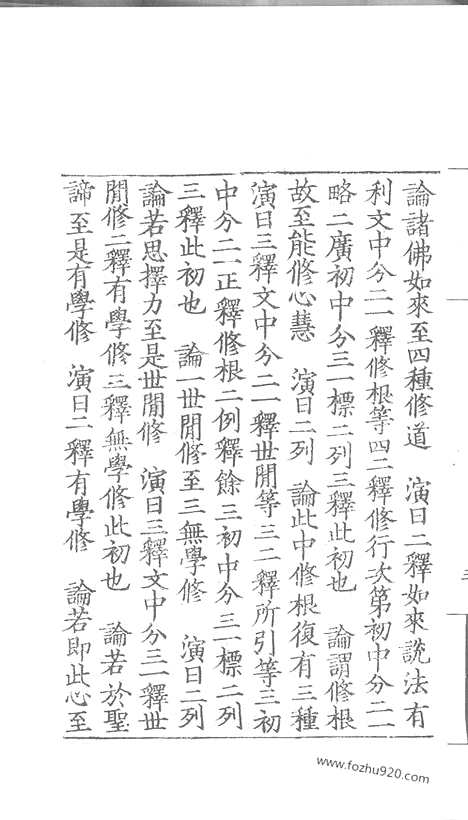 論諸佛如來至四種修道　演曰二釋如來說法有
利文中分二一釋修根等四二釋修行次第初中分二一
略二廣初中分三一標二列三釋此初也　論謂修根
故至能修心慧　演曰二列　論此中修根復有三種
演曰三釋文中分二一釋世間等三二釋所引等三初
中分二一正釋修根二例釋餘三初中分三一標二列
三釋此初也　論一世間修至三無學修　演曰二列
論若思擇力至是世間修　演曰三釋文中分三一釋世
間修二釋有學修三釋無學修此初也　論若於聖
諦至是有學修　演曰二釋有學修　論若即此心至
www.fozhu920.com